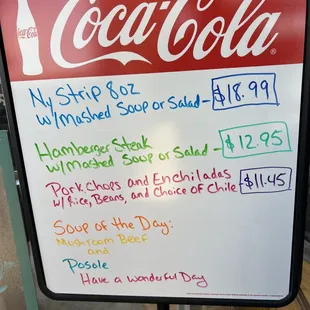 Coca-Cola
Coca-Cola®
Ny Strip 8oz
w/Mashed Soup or Salad - $18.99
Hamberger Steak
w/Mashed Soup or Salad - $12.95
Pork Chops and Enchiladas
w/Rice, Beans, and Choice of Chile - $11.45
Soup of the Day:
Mushroom Beef
and
Posole
Have a wonderful Day